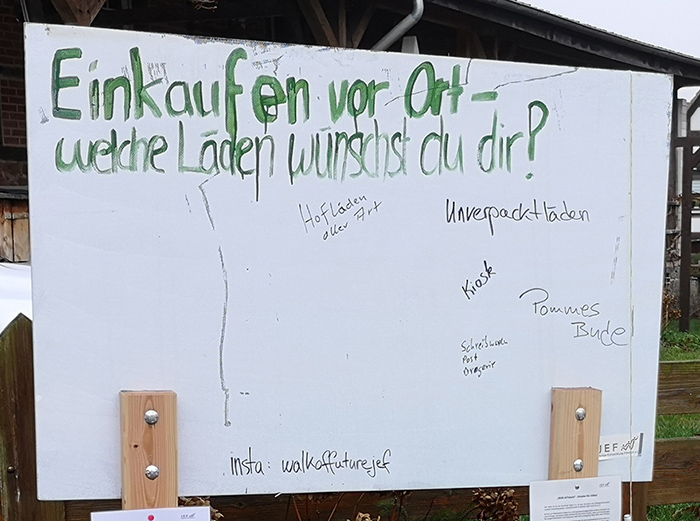 Einkaufen vor Ort -
welche Läden wünschst du dir?
Hofläden
aller Art
Unverpacktläden
Kiosk
Pommes
Bude
Schreibwaren
Post
Drogerie
insta: walkoffuture.jef
JEF